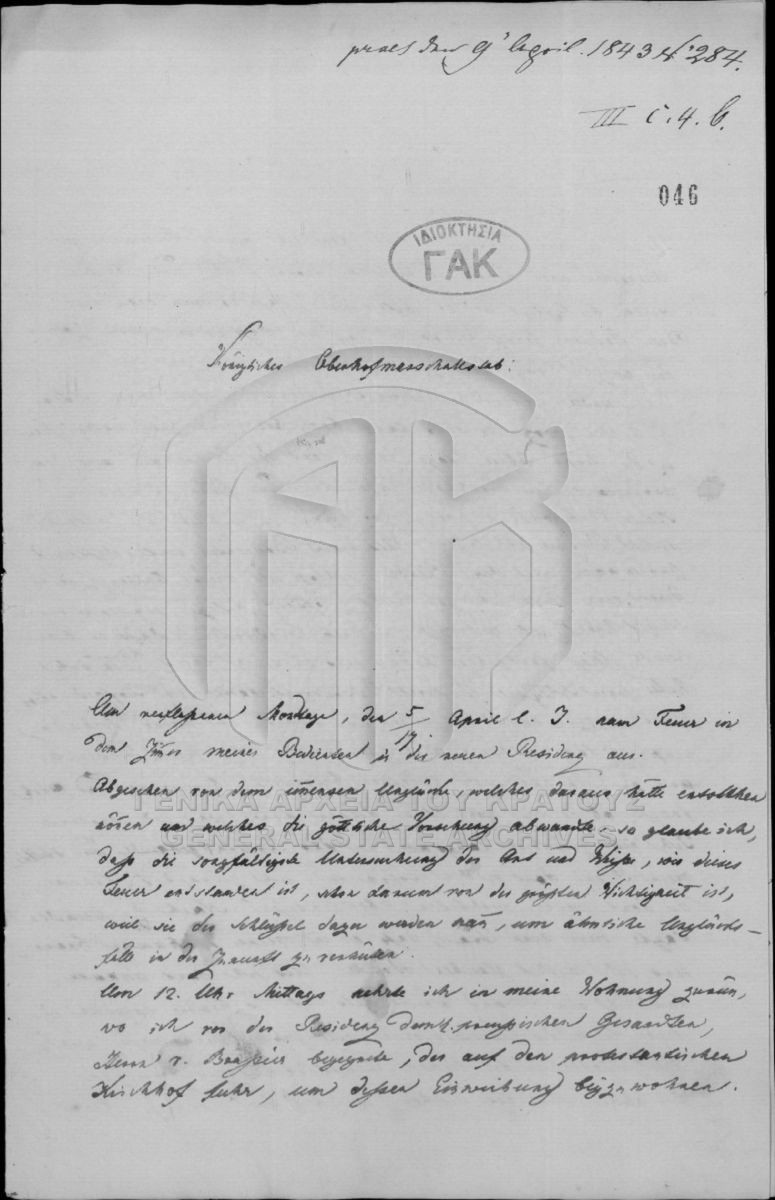 praes den 9ᵗ April. 1843 N° 284.
III c. 4. b.
046
ΙΔΙΟΚΤΗΣΙΑ
ΓΑΚ
Königliches Oberhofmarschallstab:
Am verflossenen Montage, den 5/17 April l. J. kam Feuer in
dem Zimer meines Bedienten in der neuen Residenz aus.
Abgesehen von dem immensen Unglücke, welches daraus hätte entstehen
können und welches die göttliche Vorsehung abwandte, so glaube ich,
daß die sorgfältigste Untersuchung der Art und Weise, wie dieses
Feuer entstanden ist, schon darum von der größten Wichtigkeit ist,
weil sie der Schlüssel dazu werden kañ, um ähnliche Unglücks-
fälle in der Zukunft zu verhüten.
Um 12. Uhr Mittags kehrte ich in meine Wohnung zurück,
wo ich vor der Residenz dem k. preußischen Gesandten,
Herrn v. Brassier begegnete, der auf den protestantischen
Kirchhof fuhr, um dessen Einweihung beyzuwohnen.
ΓΕΝΙΚΑ ΑΡΧΕΙΑ ΤΟΥ ΚΡΑΤΟΥΣ
GENERAL STATE ARCHIVES